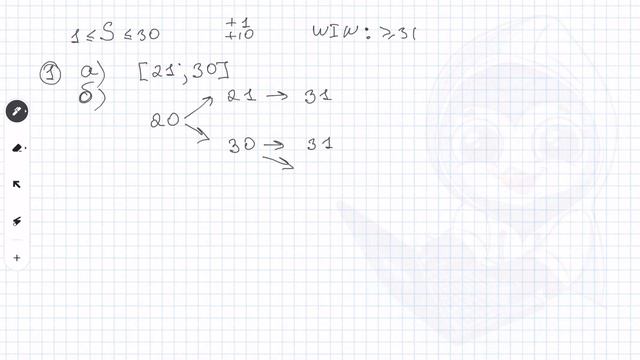 1 ≤ S ≤ 30 +1 WIN: ≥31
+10
① а) [21; 30]
б) 21 → 31
20
30 → 31